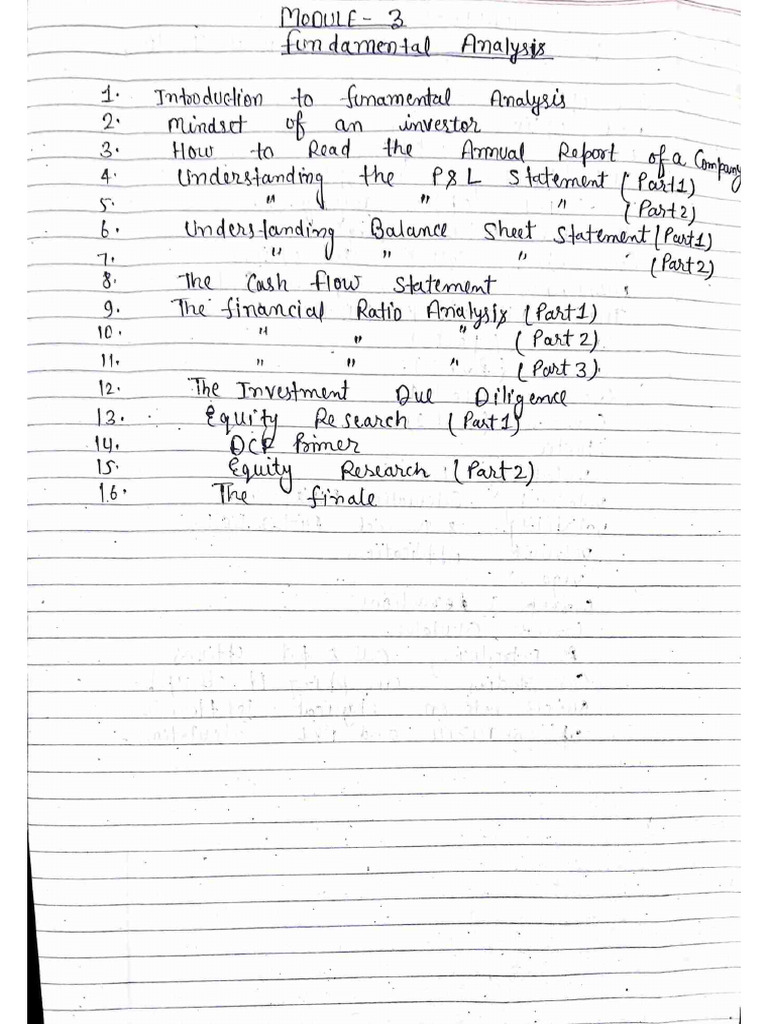 MODULE - 3
fundamental Analysis
1. Introduction to funamental Analysis
2. Mindset of an investor
3. How to Read the Annual Report of a Company
4. Understanding the P&L Statement (Part1)
5. " " " (Part2)
6. Understanding Balance Sheet Statement (Part1)
7. " " " (Part2)
8. The Cash flow Statement
9. The financial Ratio Analysis (Part1)
10. " " " (Part 2)
11. " " " (Part 3).
12. The Investment Due Diligence
13. Equity Research (Part1)
14. DCF Primer
15. Equity Research (Part2)
16. The finale